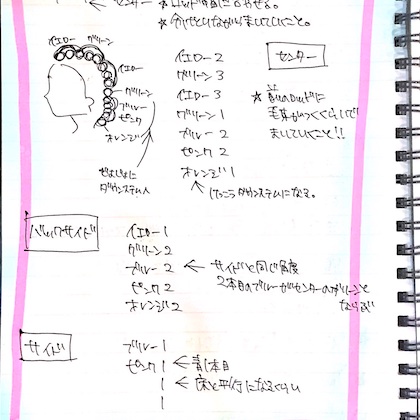 イエロー グリーン
イエロー
グリーン
ブルー
ピンク
オレンジ
イエロー 2
グリーン 3
イエロー 3
グリーン 1
ブルー 2
ピンク 2
オレンジ 1
センター
★ 前のロッドに
まいていくこと!!
ダウンステム
けっこうダウンステムになる。
バックサイド
イエロー 1
グリーン 2
ブルー 2 ← サイドと同じ角度
2本目のブルーがセンターのグリーンと
ならぶ
ピンク 2
オレンジ 2
サイド
ブルー 1
ピンク 1 ← 本目
1 ← 床と平行になるくらい
1